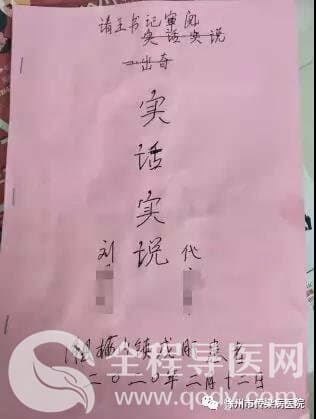 请王书记审阅
实话实说
一出奇
实
话
实
说
刘
代
二〇二〇年二月十二号
全程导医网
www.qqdy.com
徐州市传染病医院